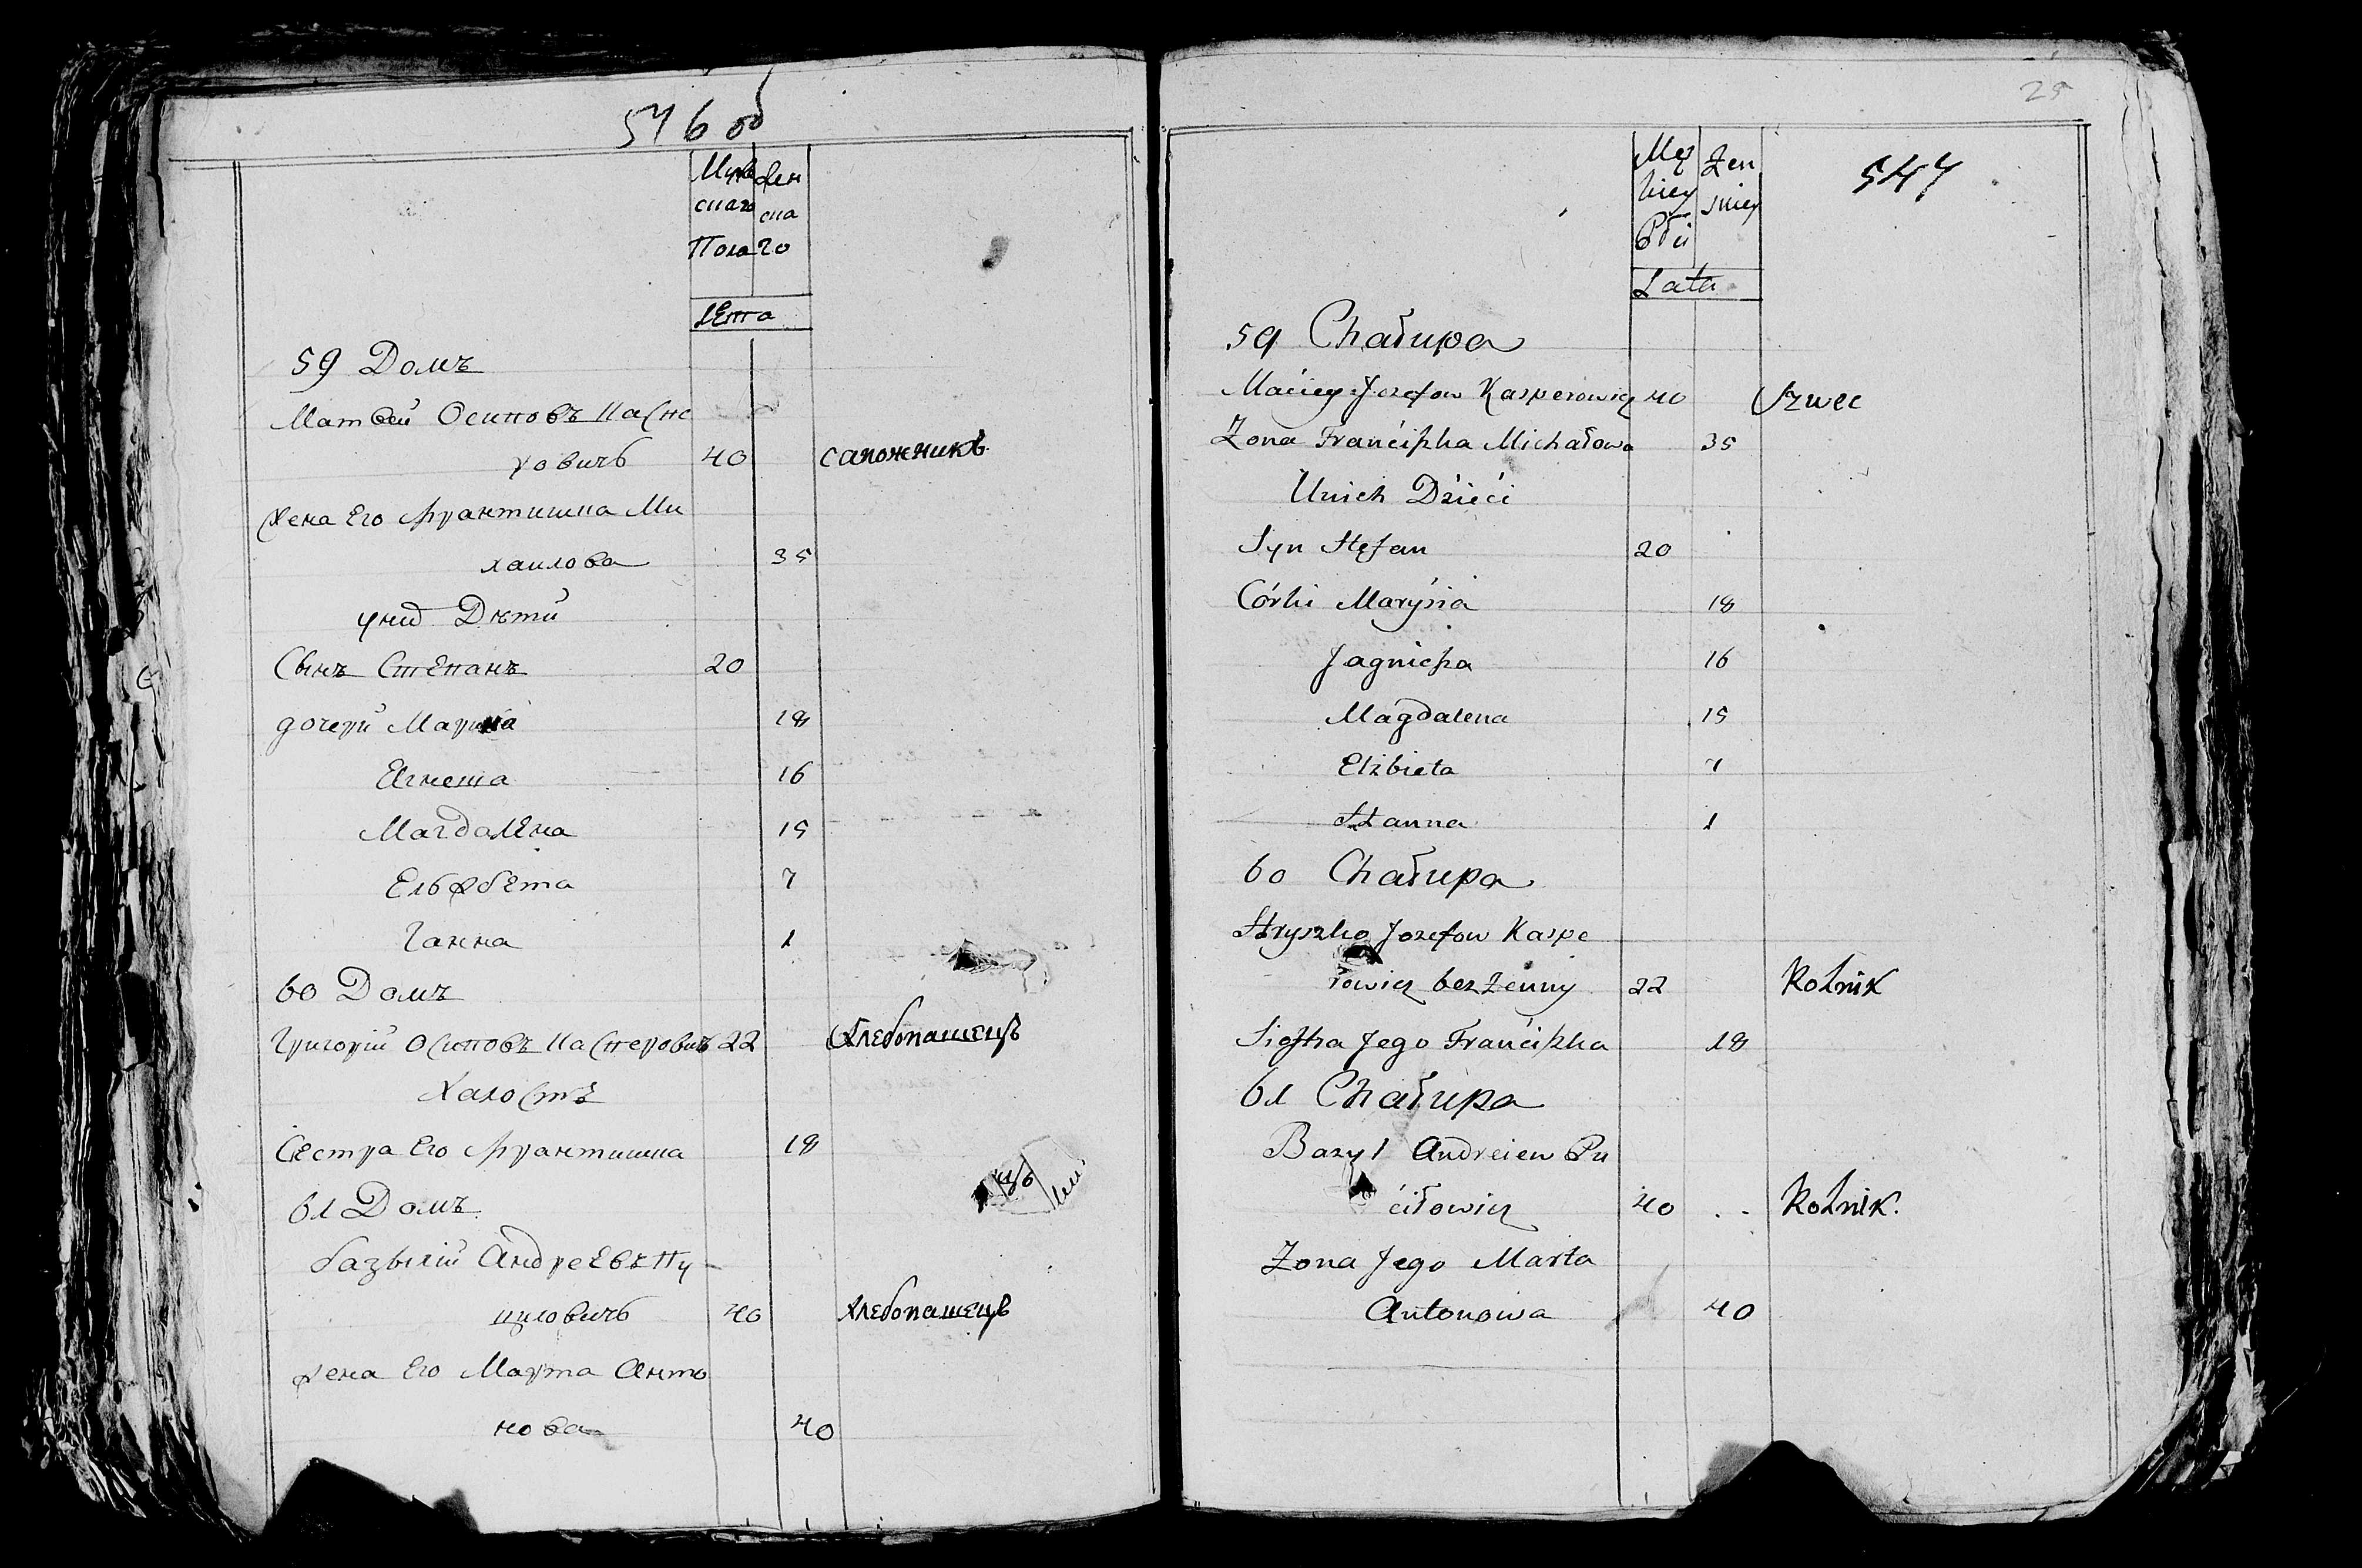 546 об
Муже Жен
скаго ска
Пола го
лЕта
59 Домъ
Матвей Осиповъ Каспе
ровичь 40 сапожникъ
Жена Его Франтишка Ми
хаилова 35
уних Дѣти
Сынъ СтЕпанъ 20
дочери Марина 18
Егнеша 16
МагдалЕна 15
ЕльжбЕта 7
Ганна 1
60 Домъ
Григорий Осиповъ Касперовичъ 22 ХлЕбопашецъ
Халостъ
СЕстра Его Франтишка 18
61 Домъ
базылий АндреЕвъ Пу-
циловичь 40 хлЕбопашецъ
Жена Его Марта Анто
нова 40
25
Męz Zen
kiey skiey
Płci
547
Lata
59 Chałupa
Maciey Jozefow Kasperowicz 40 Szwec
Zona Franciszka Michałowa 35
Unich Dzieci
Syn Stefan 20
Córki Marysia 18
Jagnieszka 16
Magdalena 15
Elżbieta 7
Hanna 1
60 Chałupa
Hryszko Jozefow Kaspe
rowicz bezżenny 22 Rolnik
Siostra Jego Franciszka 18
61 Chałupa
Bazyl Andreiew Pu
ciłowicz 40 .. Rolnik.
Zona Jego Marta
Antonowa 40